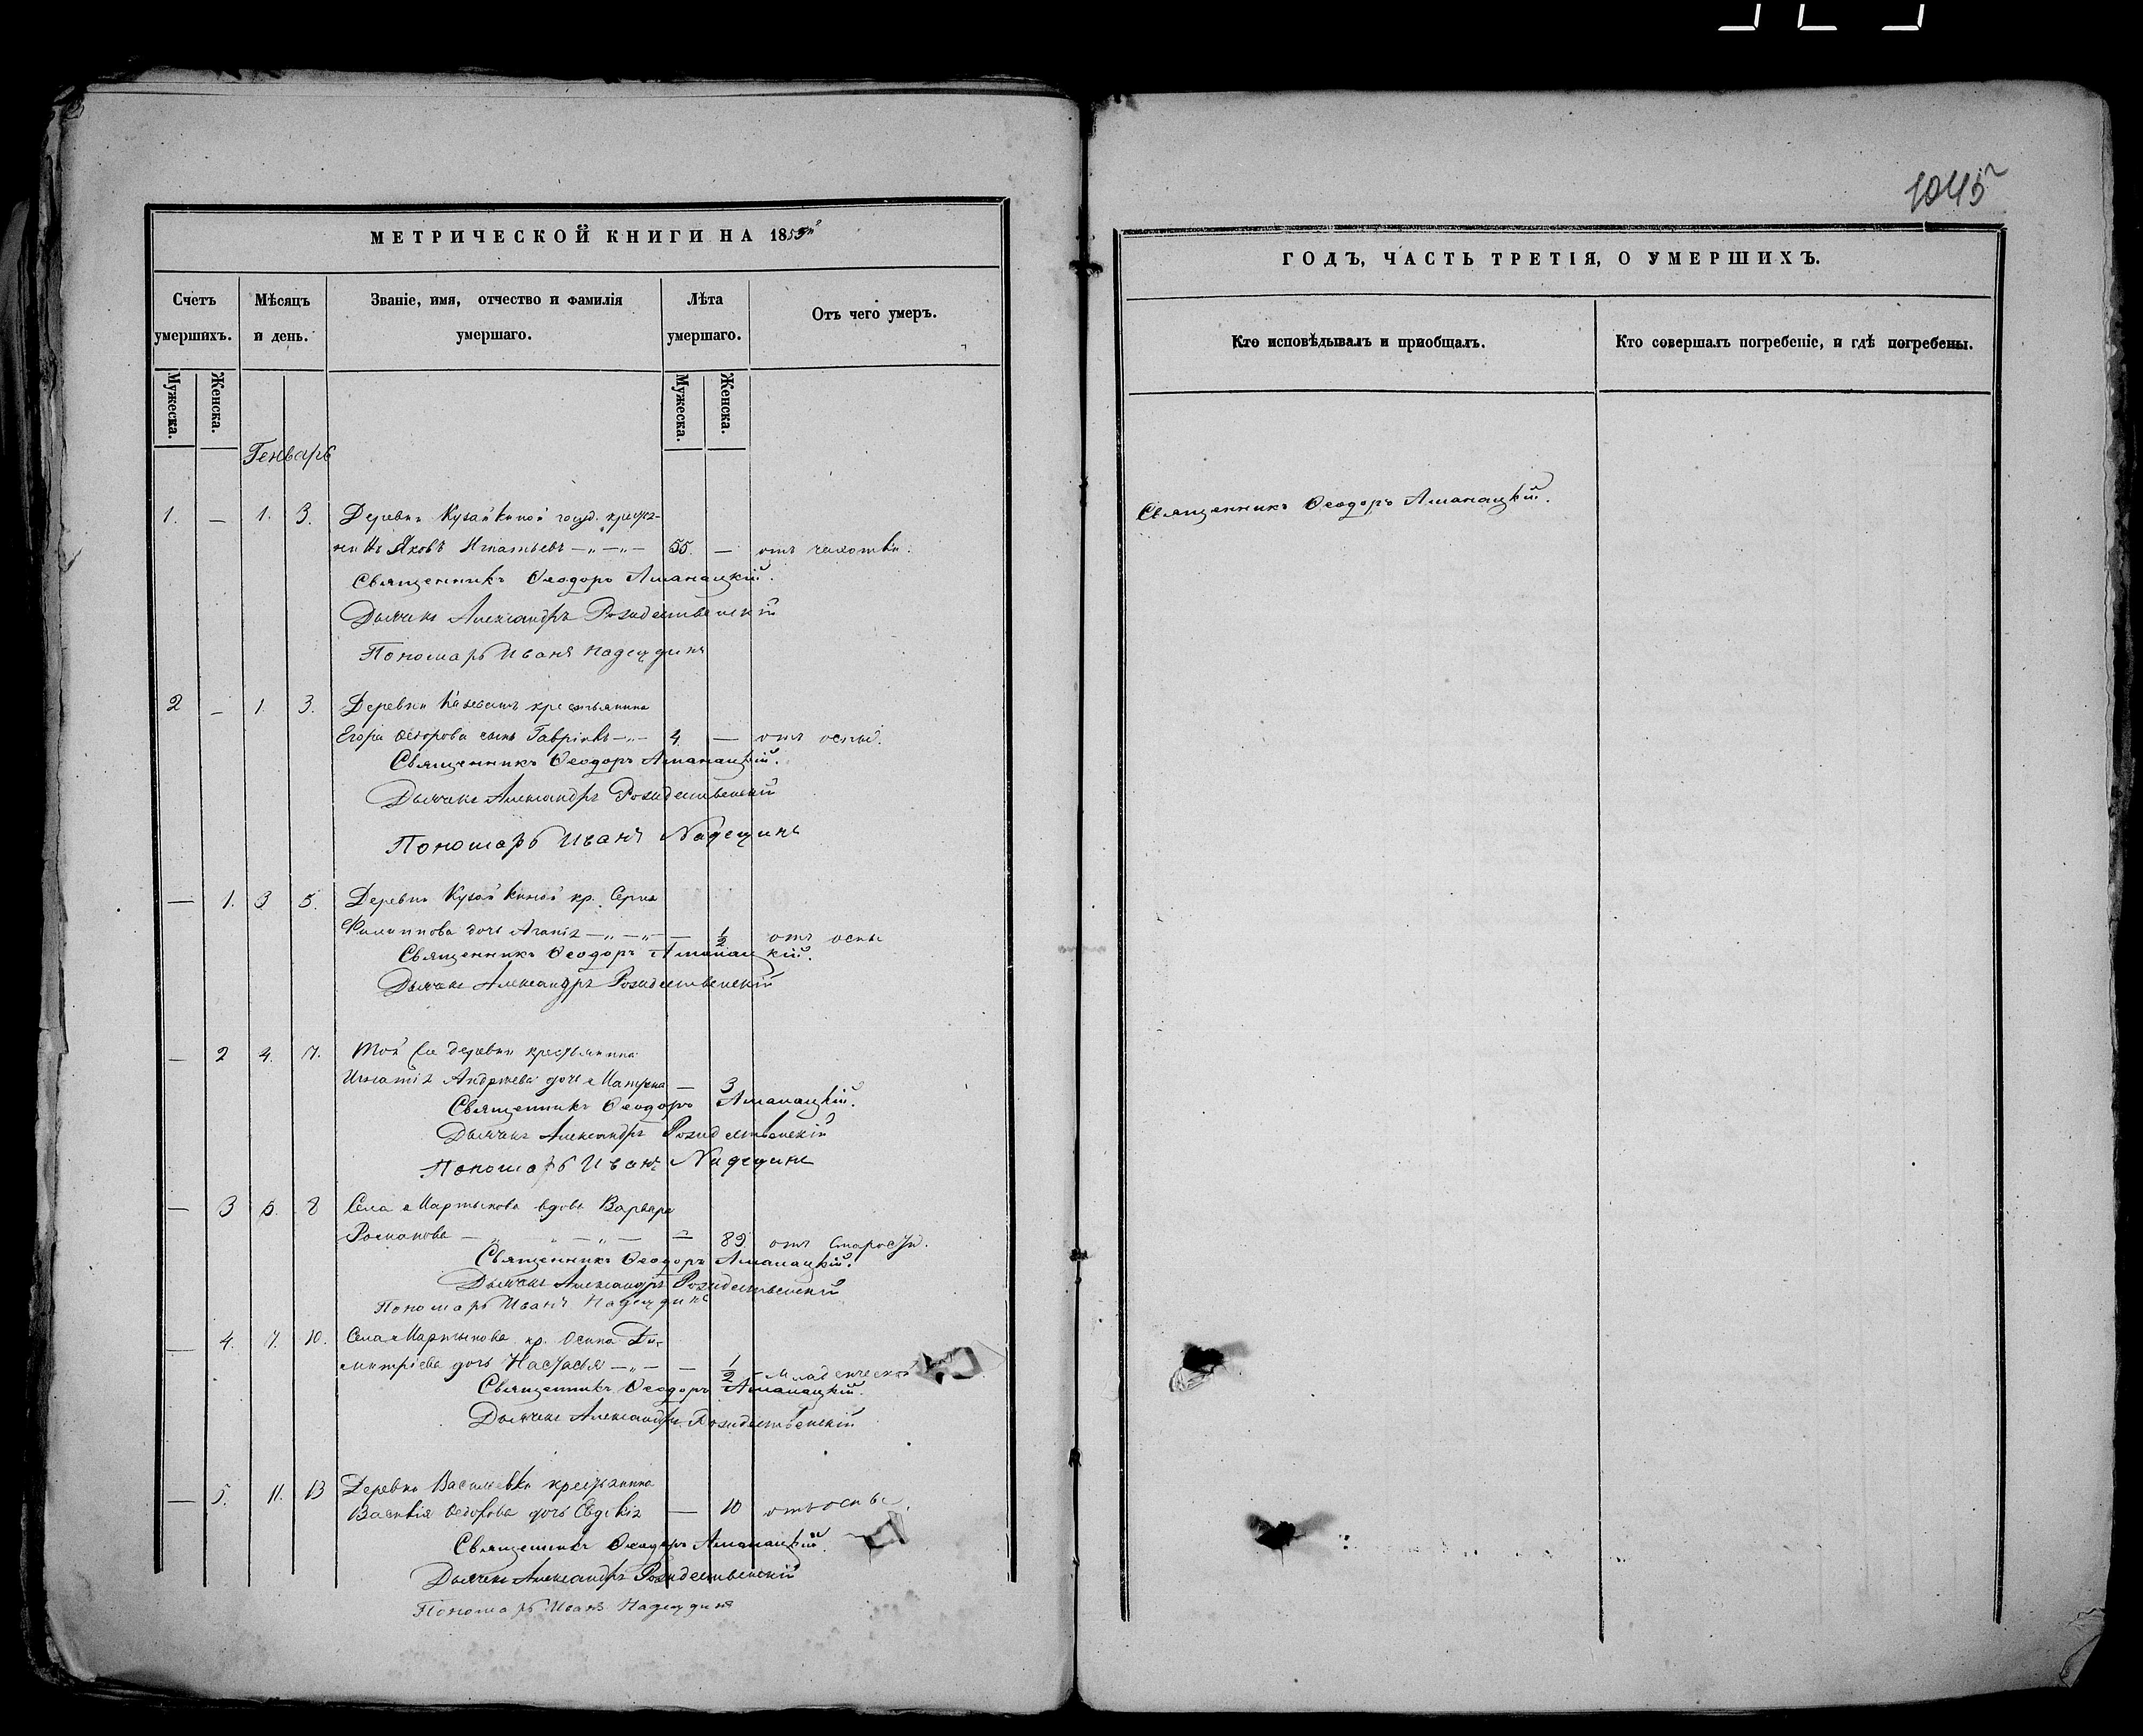 1045
МЕТРИЧЕСКОЙ КНИГИ НА 1853й
Счетъ умершихъ.
Мѣсяцъ и день.
Званіе, имя, отчество и фамилія умершаго.
Лѣта умершаго.
Отъ чего умеръ.
Мужеска.
Женска.
Мужеска.
Женска.
Генварь
1. — 1. 3. Деревни Кузайкиной госуд. крестья-
нинъ Яковъ Игнатьевъ 55. — отъ чахотки.
Священникъ Ѳеодоръ Аманацкій.
Дьячекъ Александръ Рождественскій
Пономарь Иванъ Надеждинъ
2 — 1. 3. Деревни крестьянина
Егора Ѳедорова сынъ Гавріилъ 4. — отъ оспы.
Священникъ Ѳеодоръ Аманацкій.
Дьячекъ Александръ Рождественскій
Пономарь Иванъ Надежинъ
— 1. 3 5. Деревни Кузайкиной кр. Сергія
Филиппова дочь Агапія — 1/2 отъ оспы
Священникъ Ѳеодоръ Аманацкій.
Дьячекъ Александръ Рождественскій
— 2 4. 7. Той же деревни крестьянина
Игнатія Андреева дочь Матрена — 3
Священникъ Ѳеодоръ Аманацкій.
Дьячекъ Александръ Рождественскій
Пономарь Иванъ Надежинъ
— 3 5. 8 Села Мартынова вдова Варвара
Романова — 89. отъ старости.
Священникъ Ѳеодоръ Аманацкій.
Дьячекъ Александръ Рождественскій
Пономарь Иванъ Надеждинъ
— 4. 7. 10. Села Мартынова кр. Осипа Ди-
митріева дочь Настасья — 1/2 младенческой
Священникъ Ѳеодоръ Аманацкій.
Дьячекъ Александръ Рождественскій
— 5. 11. 13 Деревни Васильевки крестьянина
Василія Ѳедорова дочь Евдокія — 10 отъ оспы.
Священникъ Ѳеодоръ Аманацкій.
Дьячекъ Александръ Рождественскій
Пономарь Иванъ Надеждинъ
ГОДЪ, ЧАСТЬ ТРЕТІЯ, О УМЕРШИХЪ.
Кто исповѣдывалъ и приобщалъ.
Кто совершалъ погребеніе, и гдѣ погребены.
Священникъ Ѳеодоръ Аманацкій.